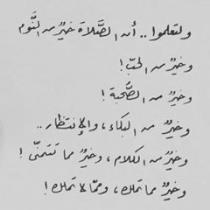 ولتعلموا .. أن الصَّلاة خيرٌ من النَّوم
وخيرٌ من الحُبّ!
وخيرٌ من الصُّحبة!
وخيرٌ من البكاء، والإنتظار ..
وخيرٌ من الكلام، وخيرٌ مما تتمنّى!
وخيرٌ مما تملك، وممّا لا تملك!